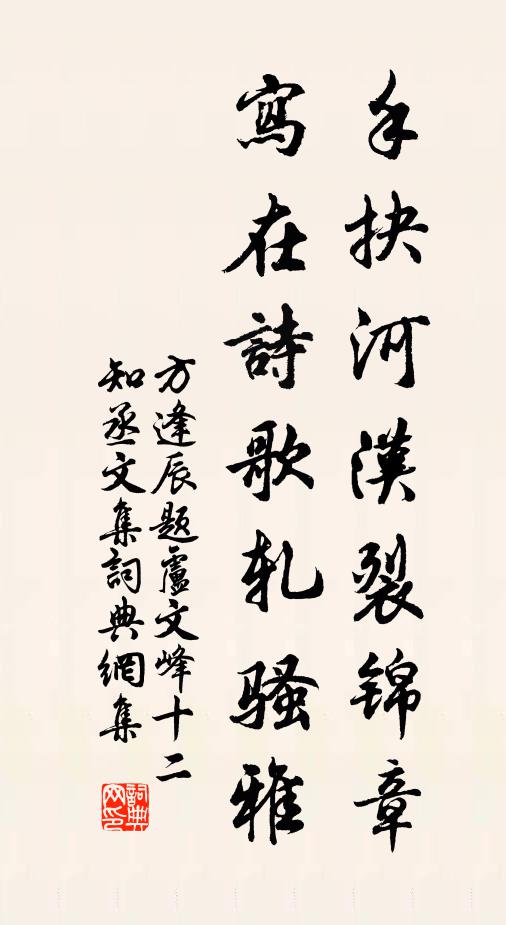 手抉河漢裂锦章
寫在詩歌軋騷雅
方逢辰题盧文峰十二
知丞文集詞典網集
詞典
网印